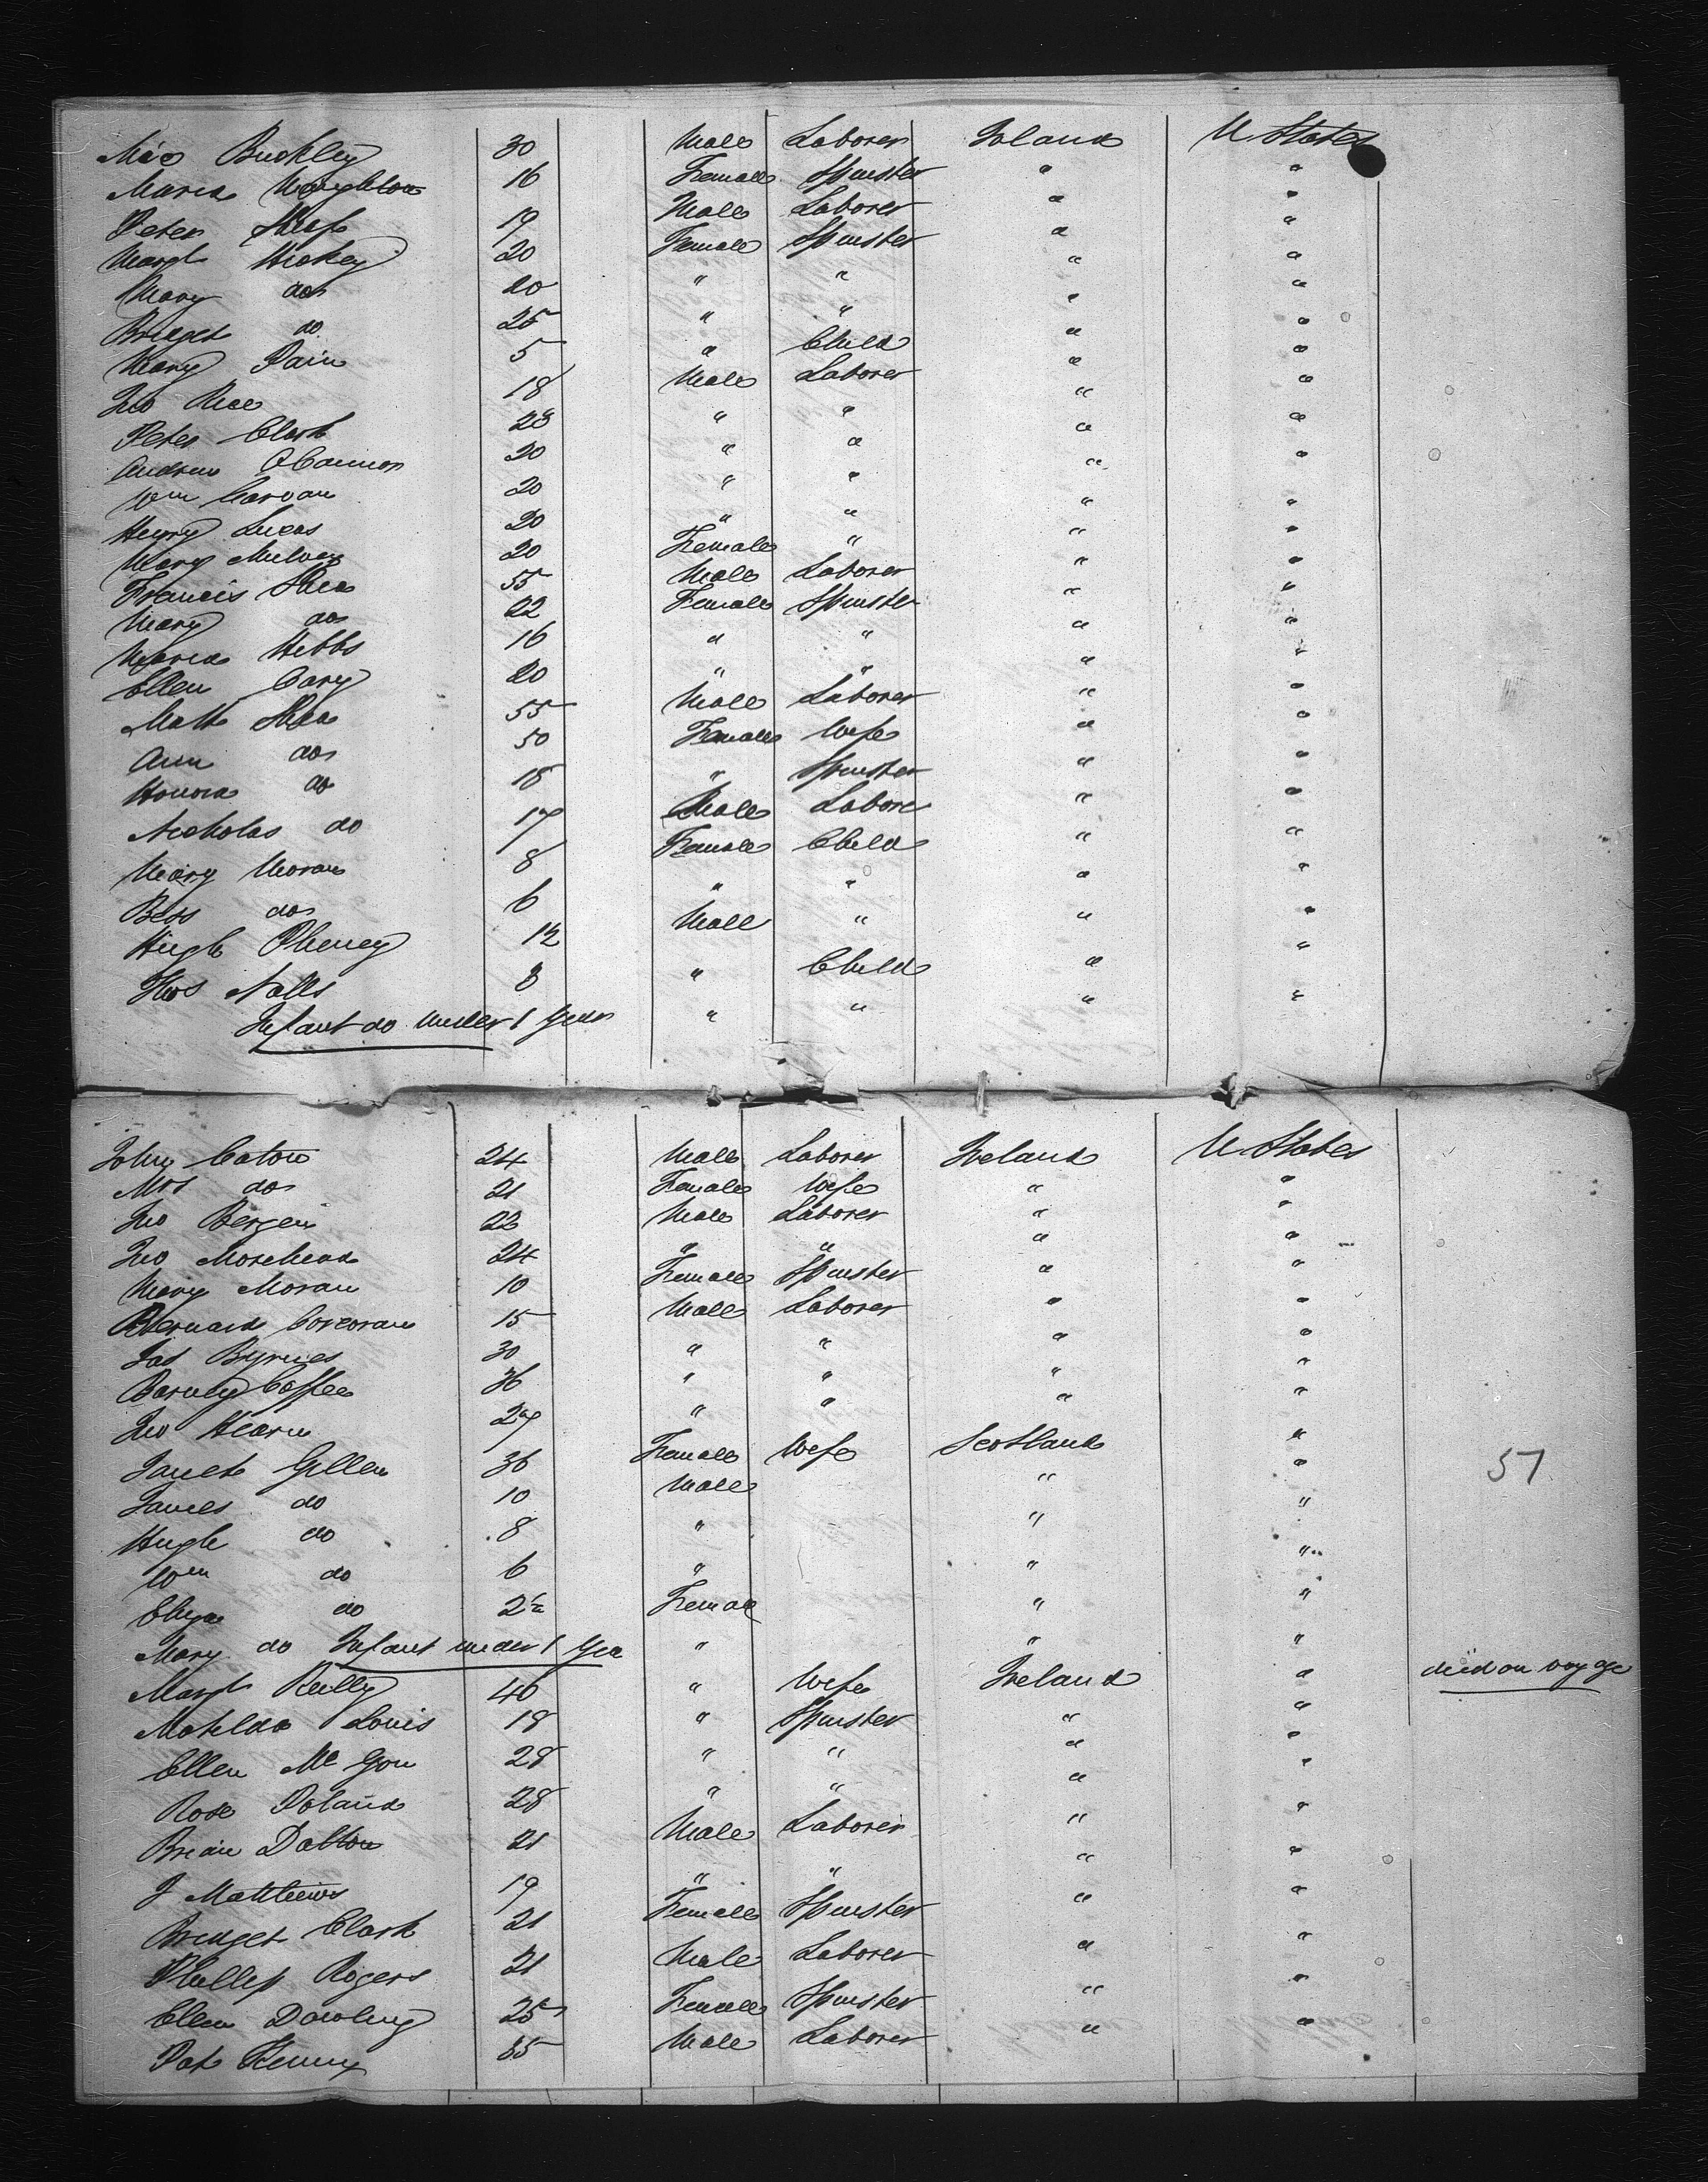 Mic Buckley 30 Male Laborer Ireland U States
Maria Naughton 16 Female Spinster " "
Peter 19 Male Laborer " "
Margt Hickey 20 Female Spinster " "
Mary do 20 " " " "
Bridget do 25 " " " "
Mary Pain 5 " Child " "
Jno Rice 18 Male Laborer " "
Peter Clark 23 " " " "
Andrew OConnor 20 " " " "
Wm Carvan 20 " " " "
Henry Lucas 20 " " " "
Mary Mulvey 20 Female " " "
Francis Shea 55 Male Laborer " "
Mary do 22 Female Spinster " "
Maria Hebbs 16 " " " "
Ellen Cary 20 " " " "
Matt Shea 55 Male Laborer " "
Ann do 50 Female Wife " "
Honora do 18 " Spinster " "
Nicholas do 17 Male Labore " "
Mary Moran 8 Female Child " "
Bess do 6 " " " "
Hugh 12 Male " " "
Thos Nalls 8 " Child " "
Infant do under 1 Year " " " "
John Caton 24 Male Laborer Ireland U States
Mrs do 21 Female Wife " "
Jno Bergen 22 Male Laborer " "
Jno Morehead 24 " " " "
Mary Moran 10 Female Spinster " "
Bernard Corcoran 15 Male Laborer " "
Jas Byrnes 30 " " " "
Barney Coffee 36 " " " "
Jno Hearn 27 " " " "
Janet Gillen 36 Female Wife Scotland "
James do 10 Male " " 51
Hugh do 8 " " "
Wm do 6 " " "
Eliza do 2½ Femal " "
Mary do Infant under 1 Yea " " "
Margt Reilly 40 " Wife Ireland " died on voyage
Matilda Louis 18 " Spinster " "
Ellen Mc Gou 28 " " " "
Rose Poland 28 " " " "
Brian Dalton 21 Male Laborer " "
J Matthews 19 " " " "
Bridget Clark 21 Female Spinster " "
Phillip Rogers 21 Male Laborer " "
Ellen Dowling 25 Female Spinster " "
Pat Kenny 35 Male Laborer " "